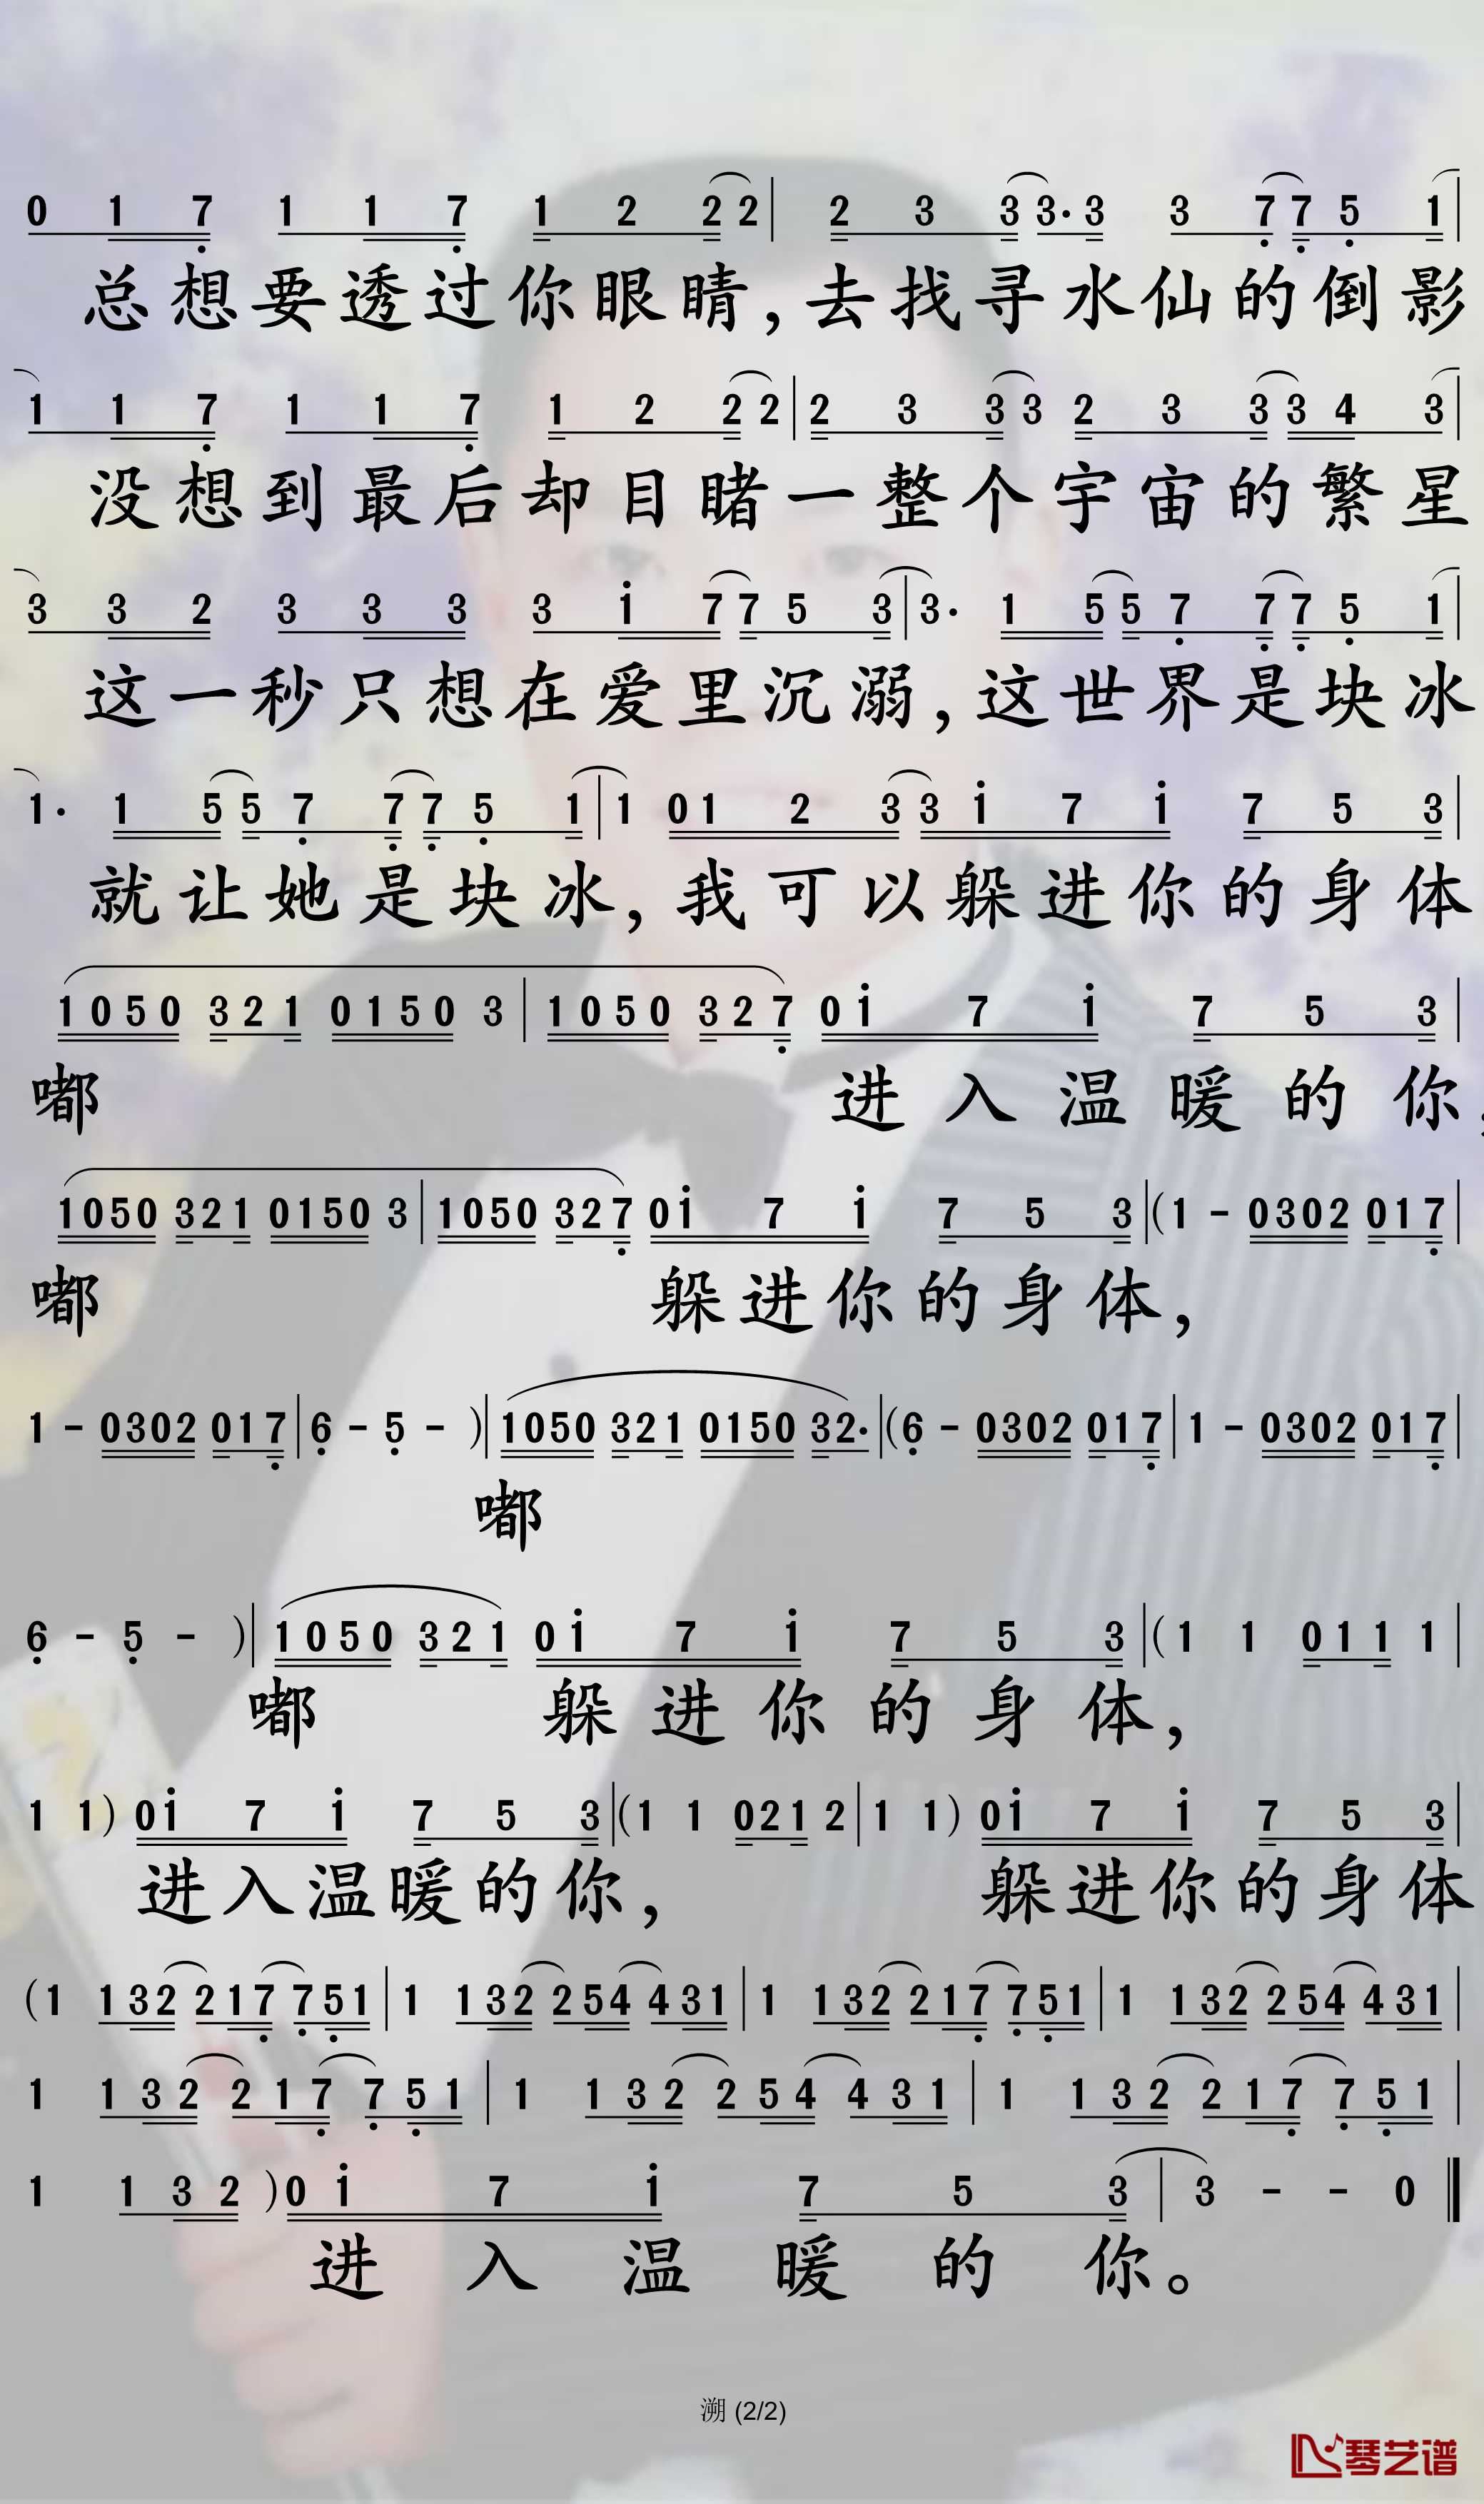 0 1 7 1 1 7 1 2 2 2 | 2 3 3 3· 3 3 7 7 5 1 |
总想要透过你眼睛,去找寻水仙的倒影
1 1 7 1 1 7 1 2 2 2 | 2 3 3 3 2 3 3 3 4 3 |
没想到最后却目睹一整个宇宙的繁星
3 3 2 3 3 3 3 1 7 7 5 3 | 3· 1 5 5 7 7 7 5 1 |
这一秒只想在爱里沉溺,这世界是块冰
1· 1 5 5 7 7 7 5 1 | 1 0 1 2 3 3 1 7 1 7 5 3 |
就让她是块冰,我可以躲进你的身体
1 0 5 0 3 2 1 0 1 5 0 3 | 1 0 5 0 3 2 7 0 1 7 1 7 5 3 |
嘟 进入温暖的你,
1 0 5 0 3 2 1 0 1 5 0 3 | 1 0 5 0 3 2 7 0 1 7 1 7 5 3 ‖ (1 - 0 3 0 2 0 1 7 |
嘟 躲进你的身体,
1 - 0 3 0 2 0 1 7 | 6 - 5 - )‖ 1 0 5 0 3 2 1 0 1 5 0 3 2· ‖ (6 - 0 3 0 2 0 1 7 | 1 - 0 3 0 2 0 1 7 |
嘟
6 - 5 - )‖ 1 0 5 0 3 2 1 0 1 7 1 7 5 3 ‖ (1 1 0 1 1 1 |
嘟 躲进你的身体,
1 1) 0 1 7 1 7 5 3 ‖ (1 1 0 2 1 2 | 1 1) 0 1 7 1 7 5 3 |
进入温暖的你, 躲进你的身体
(1 1 3 2 2 1 7 7 5 1 | 1 1 3 2 2 5 4 4 3 1 | 1 1 3 2 2 1 7 7 5 1 | 1 1 3 2 2 5 4 4 3 1 |
1 1 3 2 2 1 7 7 5 1 | 1 1 3 2 2 5 4 4 3 1 | 1 1 3 2 2 1 7 7 5 1 |
1 1 3 2 ) 0 1 7 1 7 5 3 | 3 - - 0 ‖
进入温暖的你。
溯 (2/2)
琴艺谱